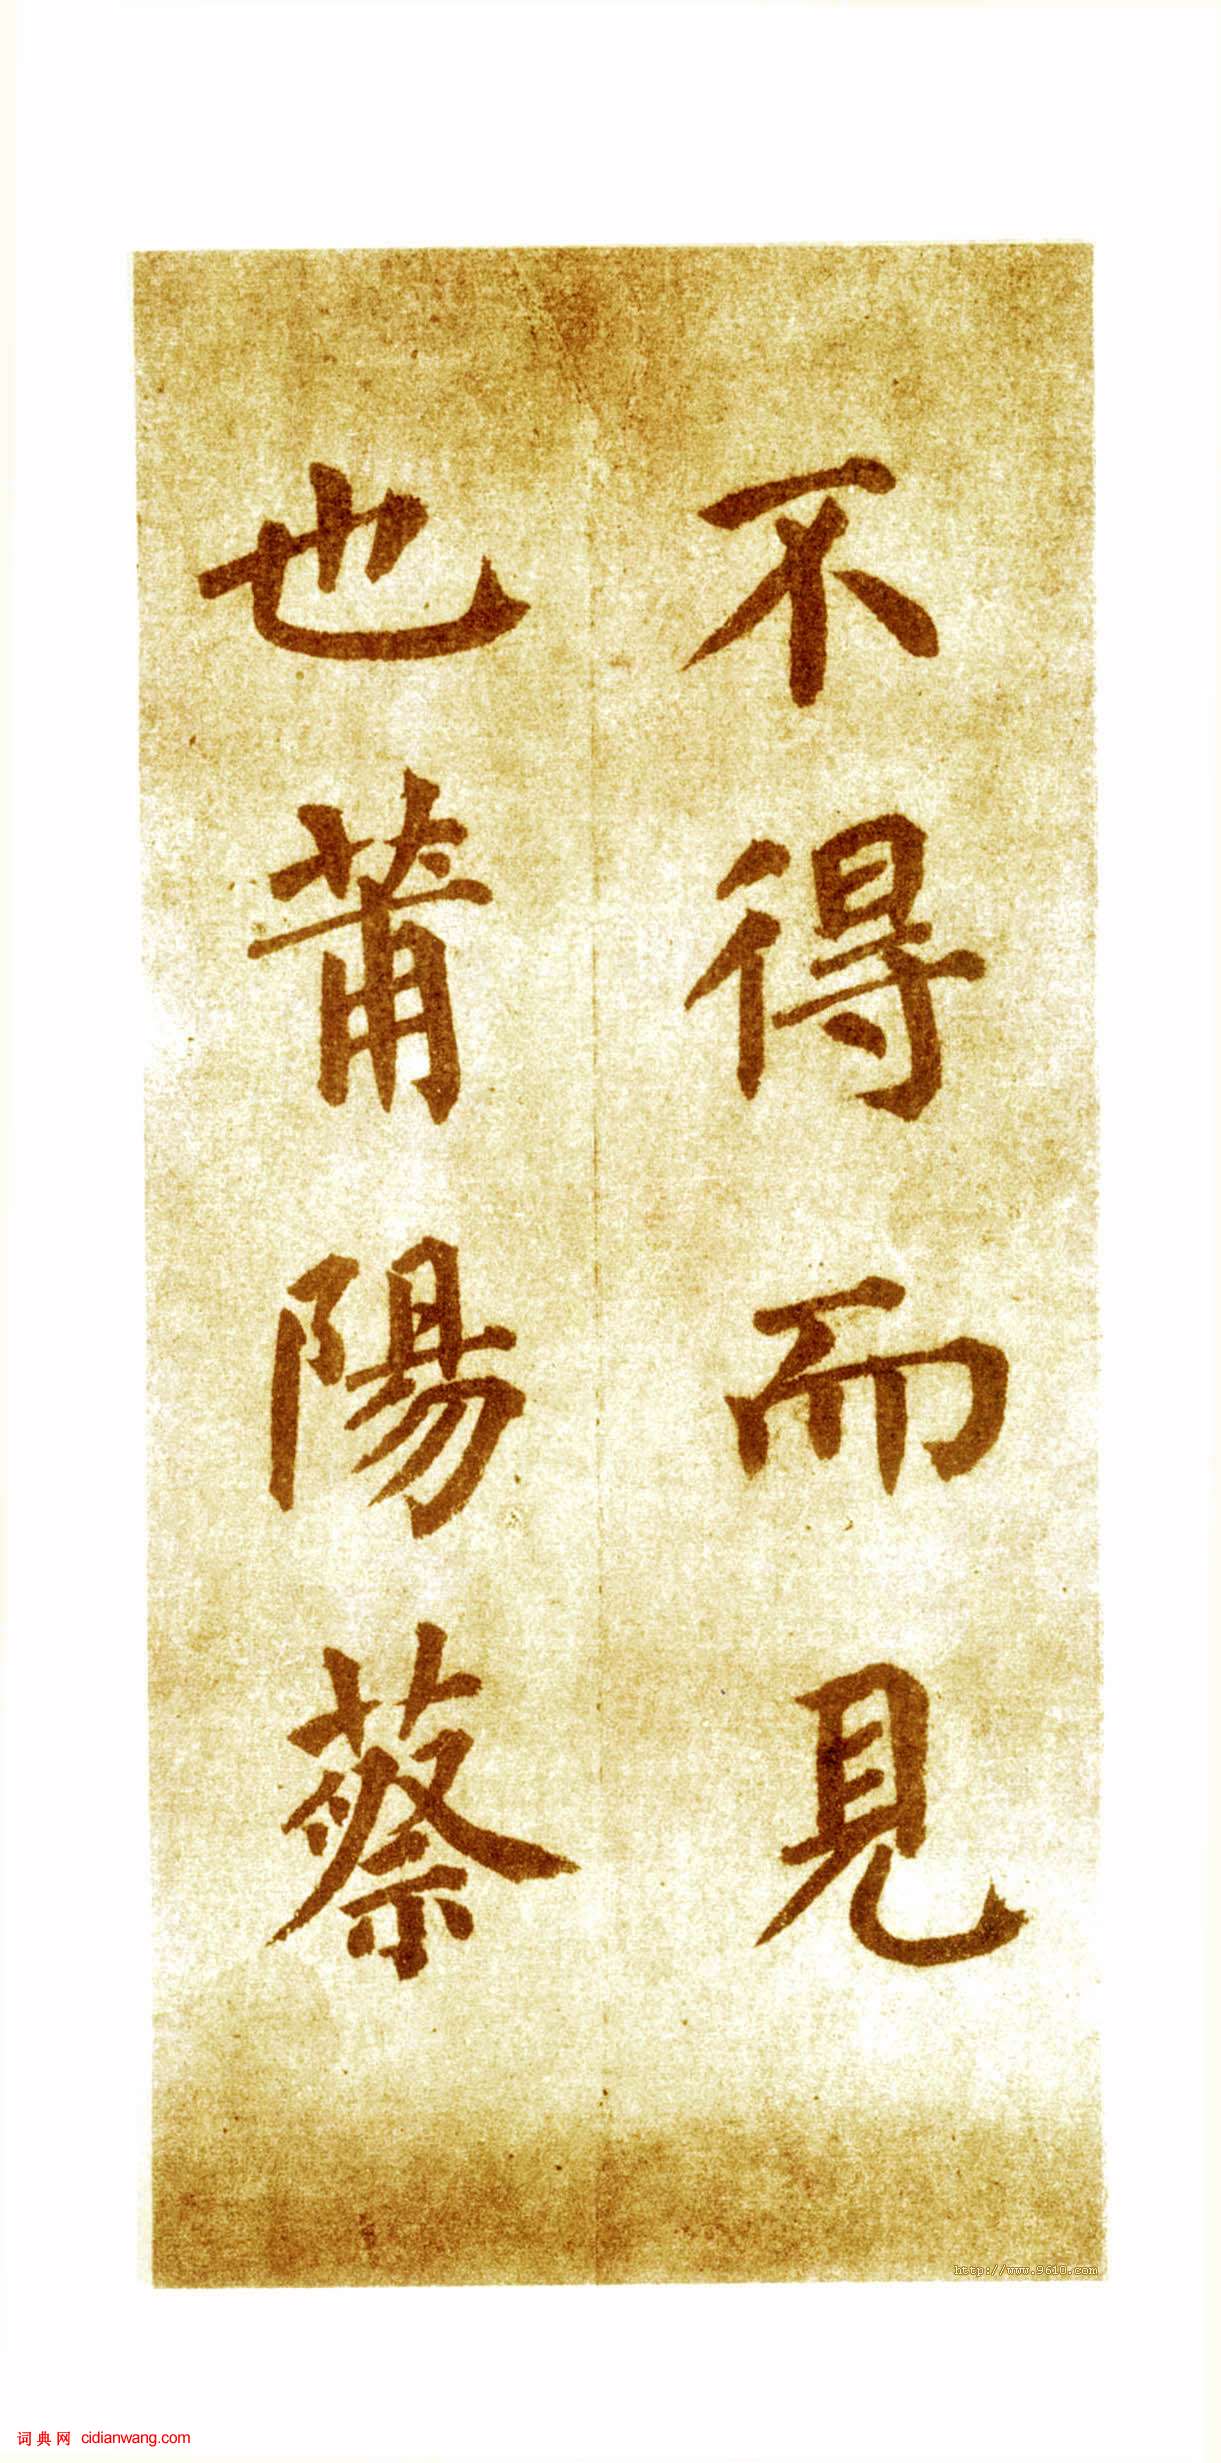 不得而見
也莆陽蔡
http://www.9610.com
词典网 cidianwang.com